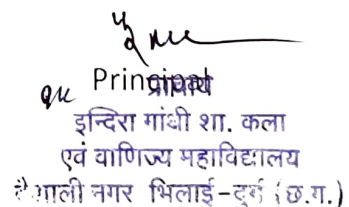 Principal
प्राचार्य
इन्दिरा गांधी शा. कला
एवं वाणिज्य महाविद्यालय
वैशाली नगर भिलाई-दुर्ग (छ.ग.)